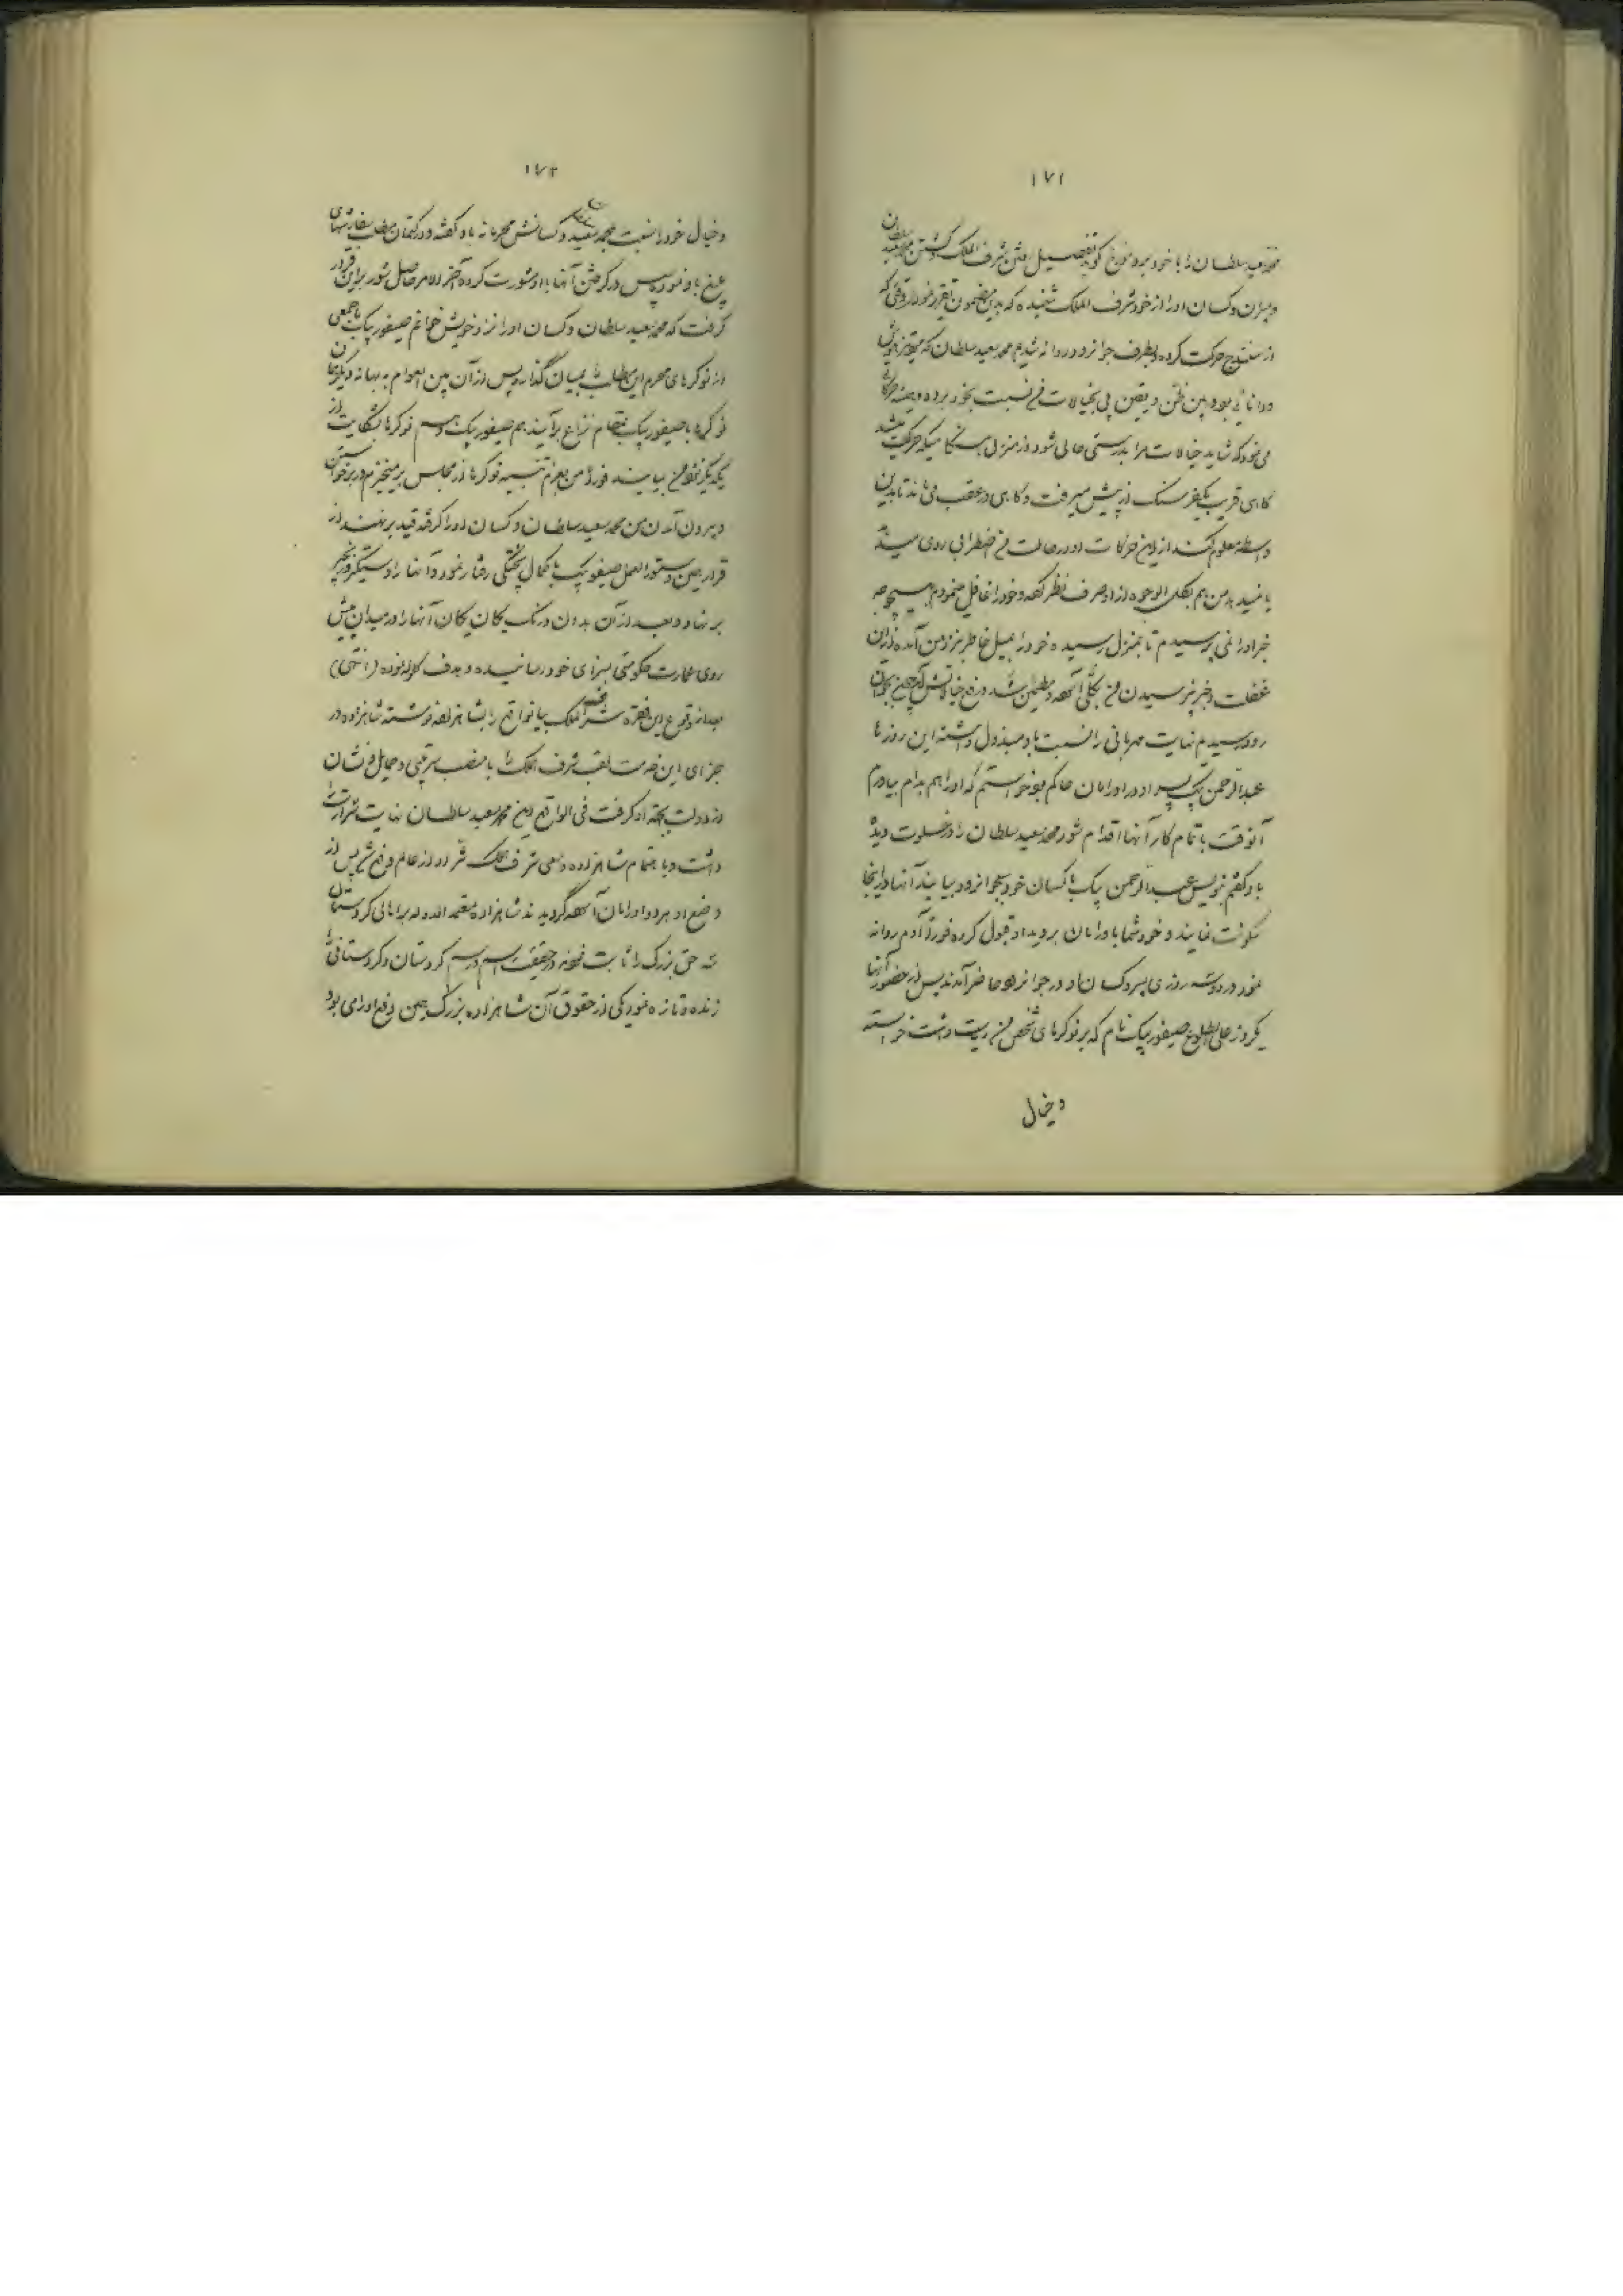 ۱۷۱
محمد سعید سلطان را با خود برد مورخ گوید تفصیل رفتن شرف الملک و کشتن محمد سعید سلطان
و پسران و کسان او را از خود شرف الملک شنیده که بدین مضمون تقریر نمود وقتی که
از سنندج حرکت کرده بطرف جوانرود روانه شدیم محمد سعید سلطان که
و دانائی بود بین ظن و یقین پی بخیالات من نسبت بخود برده و همه حرکاتی
می نمود که شاید خیالات مرا بدرستی حالی شود در منزل هنگامیکه حرکت میشد
گاهی قریب یکفرسنگ از پیش میرفت و گاهی در عقب می ماند تا بدین
واسطه معلوم کند از این حرکات او در حالت من اضطرابی روی میدهد
یا نمیدهد من هم بکلی الوجوه از او صرف نظر کرده و خود را غافل مینمودم بهیچوجه
خبر او را نمی پرسیدم تا بمنزل رسیده خود را بمیل خاطر نزد من آمده از این
غفلت و خبر نپرسیدن من بکلی آسوده و مطمئن شد و رفع خیالاتش گردید چون بجوان
رود رسیدیم نهایت مهربانی را نسبت باو مبذول داشته این روزها
عبدالرحمن بیک پسر او در اورامان حاکم بود خواستم که او را هم بدام بیاورم
آنوقت باتمام کار آنها اقدام شود محمد سعید سلطان را در خلوت دیده
باو گفتم بنویس عبدالرحمن بیک با کسان خود بجوانرود بیایند آنها در اینجا
سکونت نمایند و خود شما باورامان بروید او قبول کرده فوراً آدم روانه
نمود در دو سه روزی پسر و کسان او در جوانرود حاضر آمدند پس از حضور آنها
یکروز علی الطلوع صیفور بیک نام که بر نوکرهای شخص من ریاست داشت خواسته
و خیال
۱۷۲
و خیال خود را نسبت بمحمد سعید سلطان و کسانش محرمانه باو گفته و در کتمان مطلب سفارشهای
بلیغ باو نمود پس در گرفتن آنها با او مشورت کرده آخر الامر حاصل شور بر این قرار
گرفت که محمد سعید سلطان و کسان او را نزد خویش خوانم صیفور بیک با جمعی
از نوکرهای محرم این مطلب را بمیان گذارد پس از آن بین العوام به بهانه دیگر با
نوکرها با صیفور بیک بمقام نزاع برآیند هم صیفور بیک و هم نوکرها بشکایت از
یکدیگر نزد من بیایند فوراً من بعزم تنبیه نوکرها از مجلس برمیخیزم در برخواستن
و بیرون آمدن من محمد سعید سلطان و کسان او را گرفته قید بر نهند از
قرار همین دستور العمل صیفور بیک با کمال پختگی رفتار نمود و آنها را دستگیر و زنجیر
بر نهاد و بعد از آن بدون درنگ یکان یکان آنها را در میدان پیش
روی عمارت حکومتی بسزای خود رسانیده و هدف گلوله نموده (انتهی)
بعد از وقوع این فقره شرف الملک بیانواقع را بشاهزاده نوشته شاهزاده در
جزای این خدمت لقب شرف الملک را با منصب سرتیپی و حمایل و نشان
از دولت بجهة او گرفت فی الواقع این محمد سعید سلطان نهایت شرارت را
داشت و با اهتمام شاهزاده و سعی شرف الملک شر او از عالم رفع شد پس از
رفع او مردم اورامان آسوده گردیدند شاهزاده معتمد الدوله بر اهالی کردستان
سه حق بزرگ را ثابت فرموده در حقیقت اسم و رسم کردستان و کردستانی را
زنده و تازه نمود یکی از حقوق آن شاهزاده بزرگ همین رفع اورامی بود